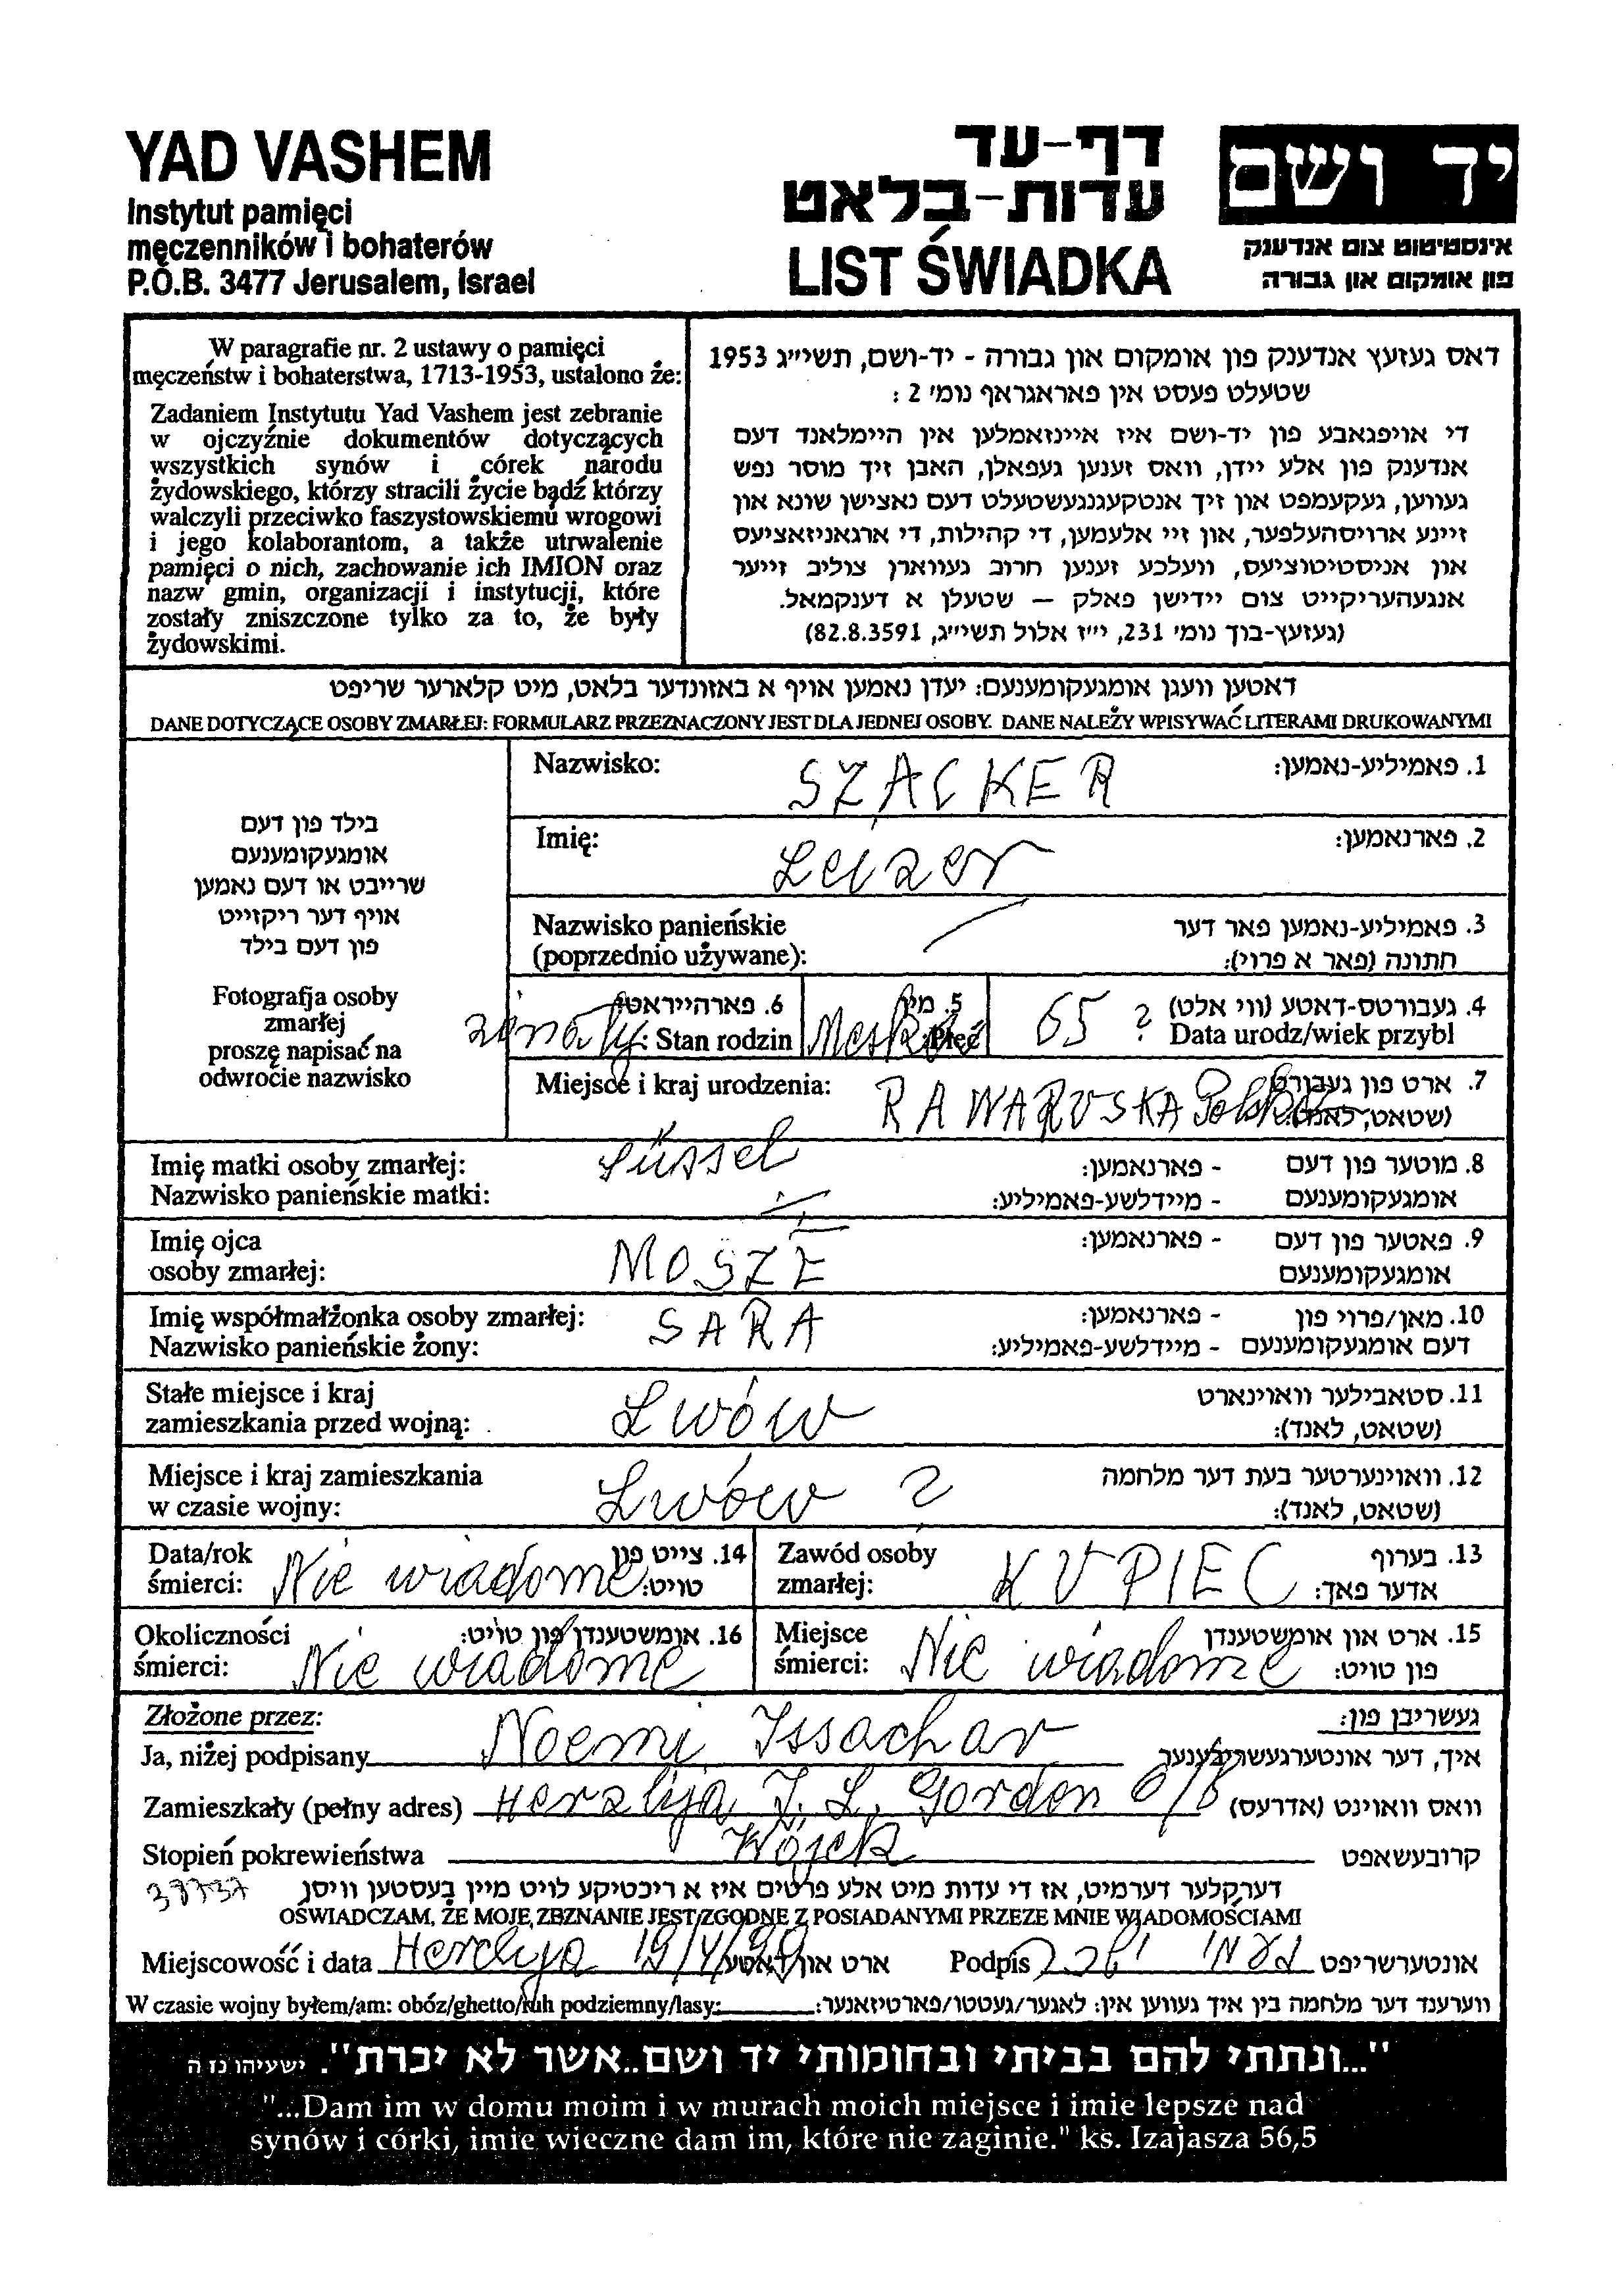 YAD VASHEM
Instytut pamięci
męczenników i bohaterów
P.O.B. 3477 Jerusalem, Israel
דף-עד
עדות-בלאט
LIST ŚWIADKA
יד ושם
אינסטיטוט צום אנדענק
פון אומקום און גבורה
W paragrafie nr. 2 ustawy o pamięci
męczeństw i bohaterstwa, 1713-1953, ustalono że:
Zadaniem Instytutu Yad Vashem jest zebranie
w ojczyźnie dokumentów dotyczących
wszystkich synów i córek narodu
żydowskiego, którzy stracili życie bądź którzy
walczyli przeciwko faszystowskiemu wrogowi
i jego kolaborantom, a także utrwalenie
pamięci o nich, zachowanie ich IMION oraz
nazw gmin, organizacji i instytucji, które
zostały zniszczone tylko za to, że były
żydowskimi.
דאס געזעץ אנדענק פון אומקום און גבורה - יד-ושם, תשי״ג 1953
שטעלט פעסט אין פאראגראף נומ׳ 2 :
די אויפגאבע פון יד-ושם איז איינזאמלען אין היימלאנד דעם
אנדענק פון אלע יידן, וואס זענען געפאלן, האבן זיך מוסר נפש
געווען, געקעמפט און זיך אנטקעגנגעשטעלט דעם נאצישן שונא און
זיינע ארויסהעלפער, און זיי אלעמען, די קהילות, די ארגאניזאציעס
און אניסטיטוציעס, וועלכע זענען חרוב געווארן צוליב זייער
אנגעהעריקייט צום יידישן פאלק – שטעלן א דענקמאל.
(געזעץ-בוך נומ׳ 231, י״ז אלול תשי״ג, 82.8.3591)
דאטען וועגן אומגעקומענעם: יעדן נאמען אויף א באזונדער בלאט, מיט קלארער שריפט
DANE DOTYCZĄCE OSOBY ZMARŁEJ: FORMULARZ PRZEZNACZONY JEST DLA JEDNEJ OSOBY. DANE NALEŻY WPISYWAĆ LITERAMI DRUKOWANYMI
בילד פון דעם
אומגעקומענעם
שרייבט או דעם נאמען
אויף דער ריקזייט
פון דעם בילד
Fotografja osoby
zmarłej
proszę napisać na
odwrocie nazwisko
Nazwisko: SZACKER 1. פאמיליע-נאמען:
Imię: Leizer 2. פארנאמען:
Nazwisko panieńskie 3. פאמיליע-נאמען פאר דער
(poprzednio używane): חתונה (פאר א פרוי):
6. פארהייראטעט 5. מין 4. געבורטס-דאטע (ווי אלט)
żonaty Stan rodzin Męski Płeć 65 ? Data urodz/wiek przybl
Miejsce i kraj urodzenia: RAWARUSKA Polska 7. ארט פון געבורט
(שטאט, לאנד):
Imię matki osoby zmarłej: Süssel 8. מוטער פון דעם - פארנאמען:
Nazwisko panieńskie matki: אומגעקומענעם - מיידלשע-פאמיליע:
Imię ojca 9. פאטער פון דעם - פארנאמען:
osoby zmarłej: MOSZE אומגעקומענעם
Imię współmałżonka osoby zmarłej: SARA 10. מאן/פרוי פון - פארנאמען:
Nazwisko panieńskie żony: דעם אומגעקומענעם - מיידלשע-פאמיליע:
Stałe miejsce i kraj 11. סטאבילער וואוינארט
zamieszkania przed wojną: Lwów (שטאט, לאנד):
Miejsce i kraj zamieszkania 12. וואוינערטער בעת דער מלחמה
w czasie wojny: Lwów ? (שטאט, לאנד):
Data/rok 14. צייט פון Zawód osoby 13. בערוף
śmierci: Nie wiadome טויט: zmarłej: KUPIEC אדער פאך:
Okoliczności 16. אומשטענדן פון טויט: Miejsce 15. ארט און אומשטענדן
śmierci: Nie wiadome śmierci: Nie wiadome פון טויט:
Złożone przez: געשריבן פון:
Ja, niżej podpisany Noemi Issachar איך, דער אונטערגעשריבענער
Zamieszkały (pełny adres) Herzlija J. L. Gordon 6/8 וואס וואוינט (אדרעס)
Stopień pokrewieństwa Wójek קרובעשאפט
37737 דערקלער דערמיט, אז די עדות מיט אלע פרטים איז א ריכטיקע לויט מיין בעסטען וויסן
OŚWIADCZAM, ŻE MOJE ZBZNANIE JEST ZGODNE Z POSIADANYMI PRZEZE MNIE WIADOMOŚCIAMI
Miejscowość i data Herclyja 19/V/99 ארט און דאטע Podpis אונטערשריפט
W czasie wojny byłem/am: obóz/ghetto/ruh podziemny/lasy: ווערענד דער מלחמה בין איך געווען אין: לאגער/געטטו/פארטיזאנער:
"...ונתתי להם בביתי ובחומותי יד ושם..אשר לא יכרת". ישעיהו נז ה
"...Dam im w domu moim i w murach moich miejsce i imie lepsze nad
synów i córki, imie wieczne dam im, które nie zaginie." ks. Izajasza 56,5